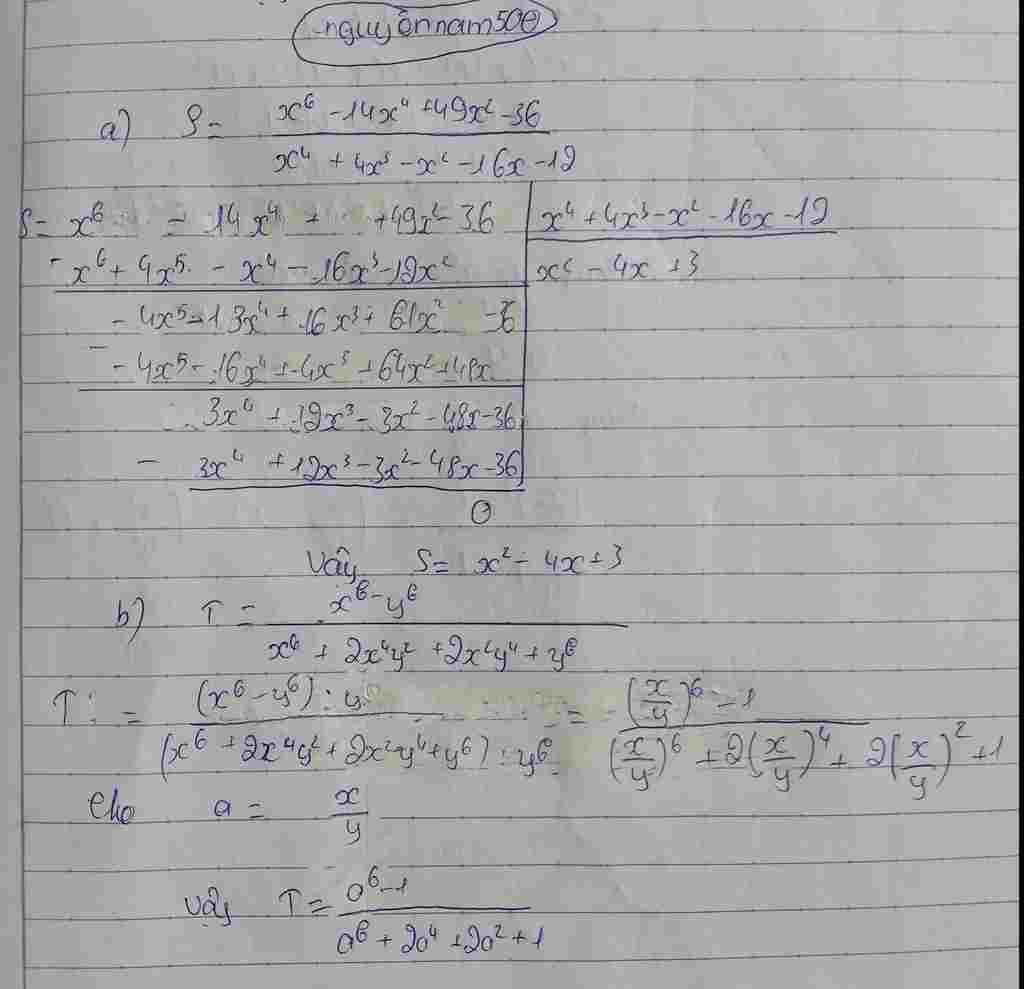 nguyễnnam500
a) S = (x⁶ - 14x⁴ + 49x² - 36) / (x⁴ + 4x³ - x² - 16x - 12)
S = x⁶ - 14x⁴ + +49x² - 36 | x⁴ + 4x³ - x² - 16x - 12
- x⁶ + 4x⁵ - x⁴ - 16x³ - 12x² | x² - 4x + 3
- 4x⁵ - 13x⁴ + 16x³ + 61x² - 36
- - 4x⁵ - 16x⁴ + 4x³ + 64x² + 48x
3x⁴ + 12x³ - 3x² - 48x - 36
- 3x⁴ + 12x³ - 3x² - 48x - 36
0
Vậy S = x² - 4x + 3
b) T = (x⁶ - y⁶) / (x⁶ + 2x⁴y² + 2x²y⁴ + y⁶)
T: = ((x⁶ - y⁶) : y⁶) / ((x⁶ + 2x⁴y² + 2x²y⁴ + y⁶) : y⁶) = ((x/y)⁶ - 1) / ((x/y)⁶ + 2(x/y)⁴ + 2(x/y)² + 1)
Cho a = x/y
Vậy T = (a⁶ - 1) / (a⁶ + 2a⁴ + 2a² + 1)